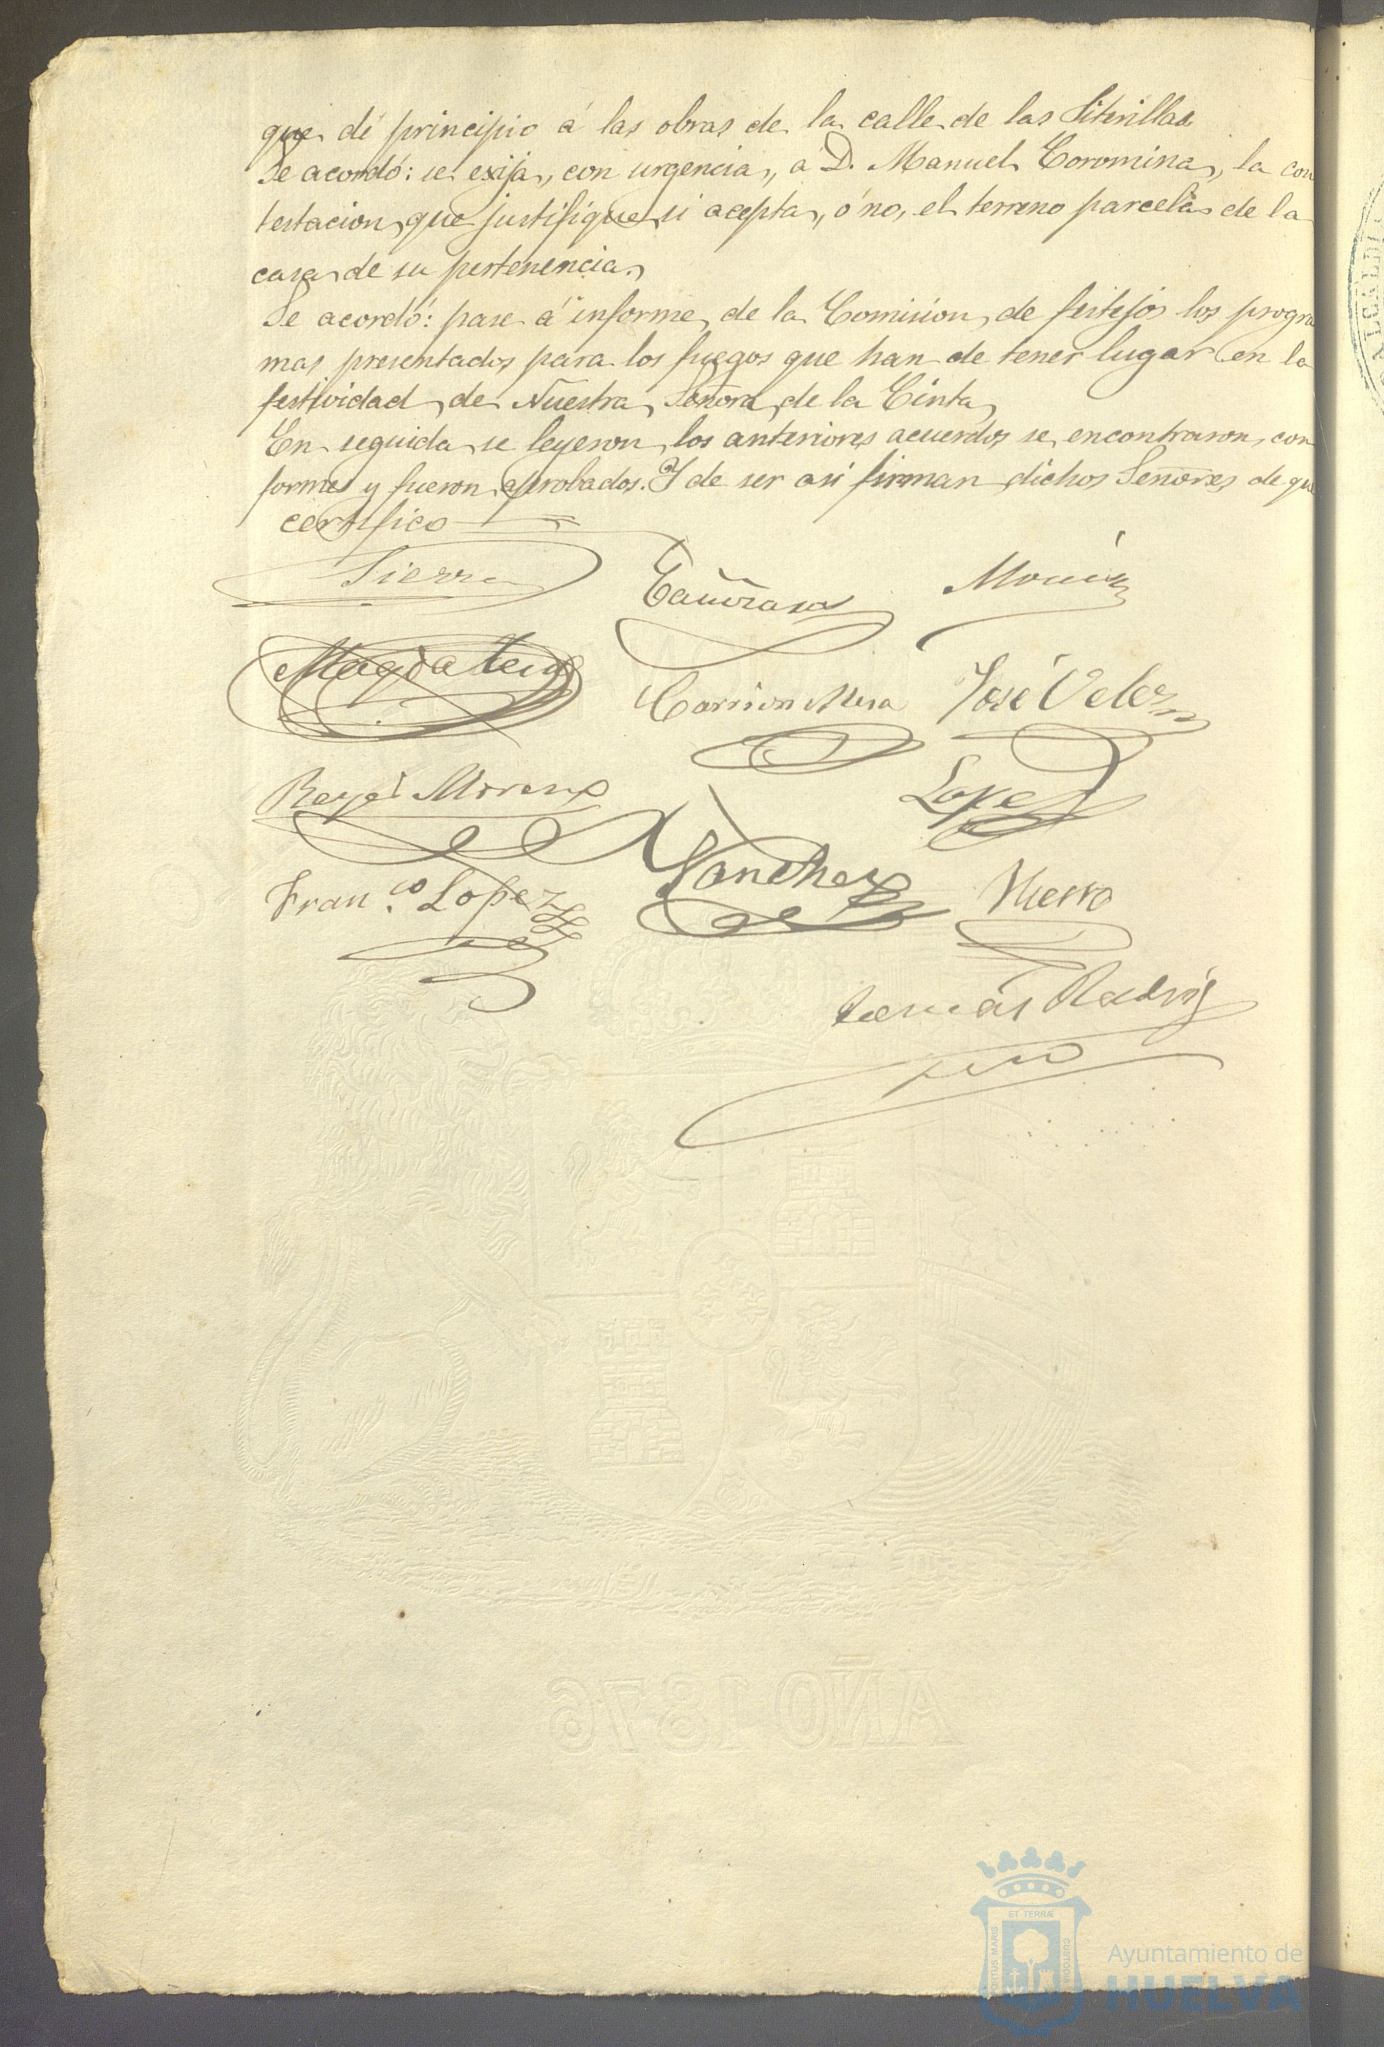 que dé principio á las obras de la calle de las Siterillas
Se acordó: se exija, con urgencia, a D. Manuel Coromina, la con
testacion, que justifique si acepta, ó no, el terreno parcela de la
casa de su pertenencia.
Se acordó: pase á informe, de la Comision, de festejos los progra
mas presentados para los fuegos que han de tener lugar en la
festividad de Nuestra Señora de la Cinta,
En seguida se leyeron los anteriores acuerdos se encontraron con
formes y fueron aprobados. Y de ser asi firman dichos Señores de que
certifico
Sierra
Morién
Magdalena
Carrion Mesa
José Velez
Rafael Moreno
Lopez
Sanchez
Fran.co Lopez
Hierro
Tomás Rodrig
AÑO 1876
ET TERRÆ
PORTUS MARIS
CUSTODIA
Ayuntamiento de
HUELVA